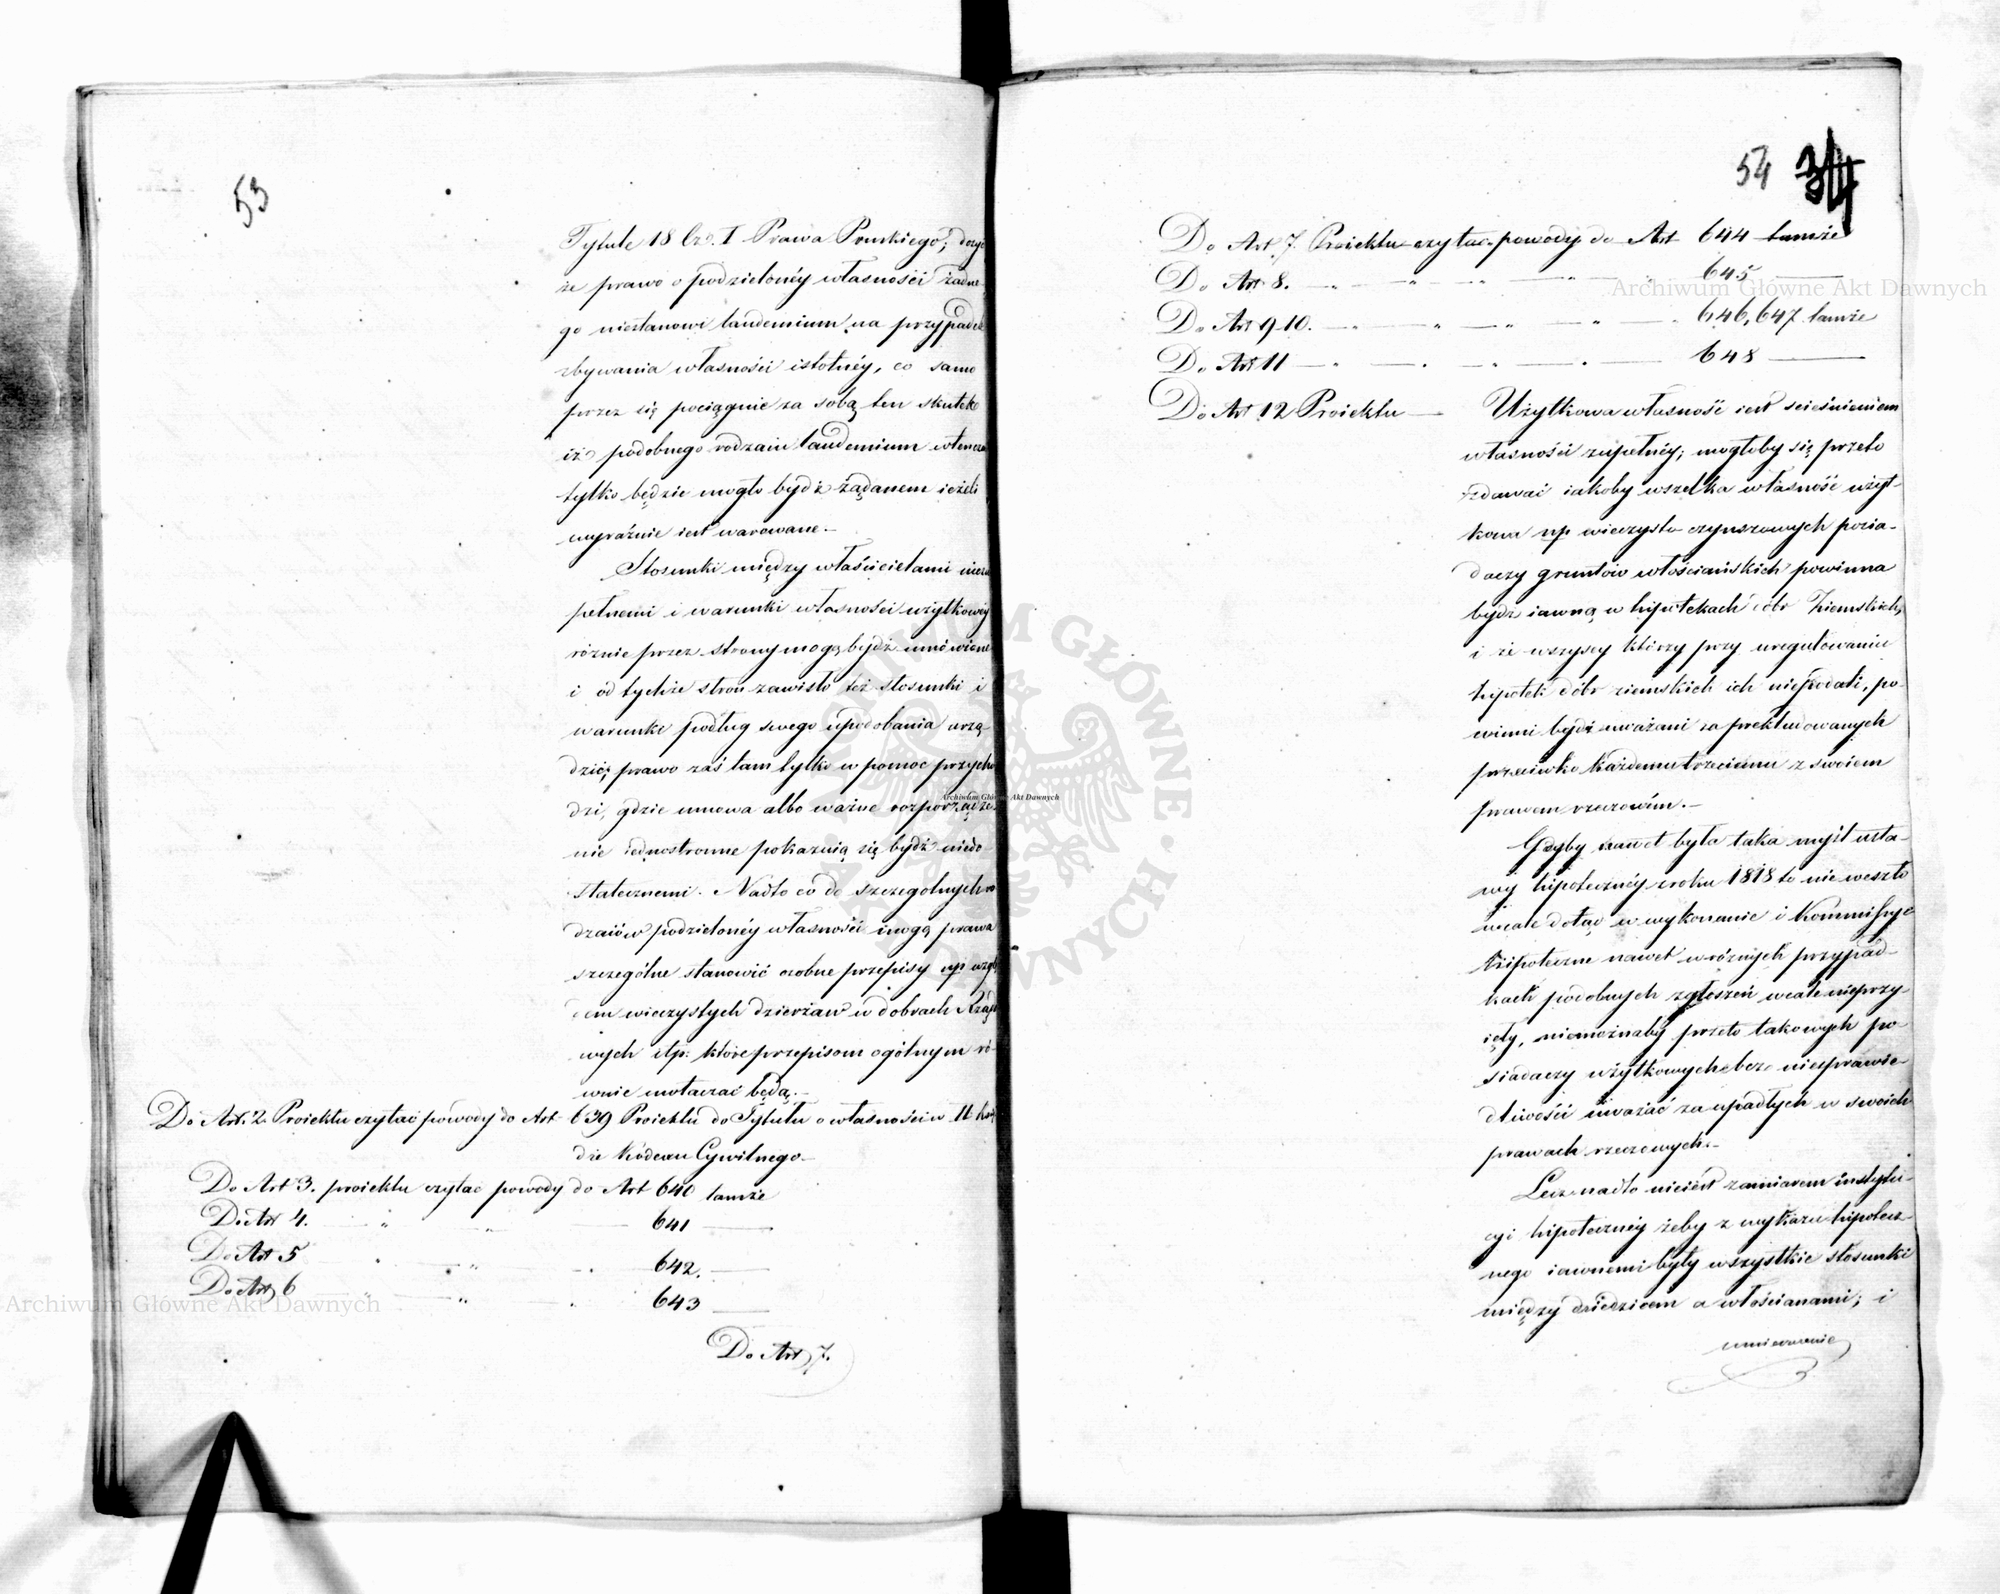 53
Tytule 18 Cz. I Prawa Pruskiego;
że prawo o podzielonéy własności żadne-
go niestanowi laudemium na przypadek
zbywania własności istotnéy, co samo
przez się pociągnie za sobą ten skutek
iż podobnego rodzaiu laudemium wtenczas
tylko będzie mogło bydź żądanem ieżeli
wyraźnie iest warowane.–
Stosunki między właścicielami niezu
pełnemi i warunki własności użytkowéy
różnie przez strony mogą bydź umówione
i od tychże stron zawisło też stosunki i
warunki podług swego upodobania urzą-
dzić; prawo zaś tam tylko w pomoc przycho
dzi, gdzie umowa albo ważne rozporządze
nie iednostronne pokazuią się bydź niedo
statecznemi. Nadto co do szczegolnych ro
dzaiów podzielonéy własności mogą prawa
szczególne stanowić osobne przepisy np wzglę
dem wieczystych dzierżaw w dobrach Rządo
wych itp: które przepisom ogólnym ró-
wnie uwłaczać będą.–
Do Art. 2. Proiektu czytać powody do Art 639 Proiektu do Tytułu o własności w II
dze Kodexu Cywilnego–
Do Art 3. proiektu czytać powody do Art 640 tamże
Do Art 4. 641
Do Art 5 642.
Do Art 6 643
Do Art 7.
54 34
Do Art 7. Proiektu czytać powody do Art 644 tamże
Do Art 8. 645
Do Art 9 10. 646, 647 tamże
Do Art 11 648
Do Art 12 Proiektu — Użytkowa własność iest scieśnieniem
własności zupełnéy; mogłoby się przeto
zdawać iakoby wszelka własność użyt-
kowa np wieczysto czynszowych posia-
daczy gruntów włościańskich powinna
bydź iawną w hipotekach dóbr Ziemskich,
i że wszyscy którzy przy uregulowaniu
hypotek dóbr ziemskich ich niepodali, po-
winni bydź uważani za prekludowanych
przeciwko każdemu trzeciemu z swoiem
prawem rzeczowém.–
Gdyby nawet była taka myśl usta-
wy hipotecznéy z roku 1818 to nie weszło
wcale dotąd w wykonanie i Kommissye
hipoteczne nawet w różnych przypad-
kach podobnych zgłoszeń wcale nieprzy-
ięły, niemożnaby przeto takowych po-
siadaczy użytkowych bez niesprawie-
dliwości uważać za upadłych w swoich
prawach rzeczowych.–
Lecz nadto nieiest zamiarem instytu-
cyi hipotecznéy żeby z wykazu hipotecz-
nego iawnemi były wszystkie stosunki
między dziedzicem a włościanami; i
umieszczenie
Archiwum Główne Akt Dawnych
Archiwum Główne Akt Dawnych
Archiwum Główne Akt Dawnych
ARCHIWUM GŁÓWNE AKT DAWNYCH